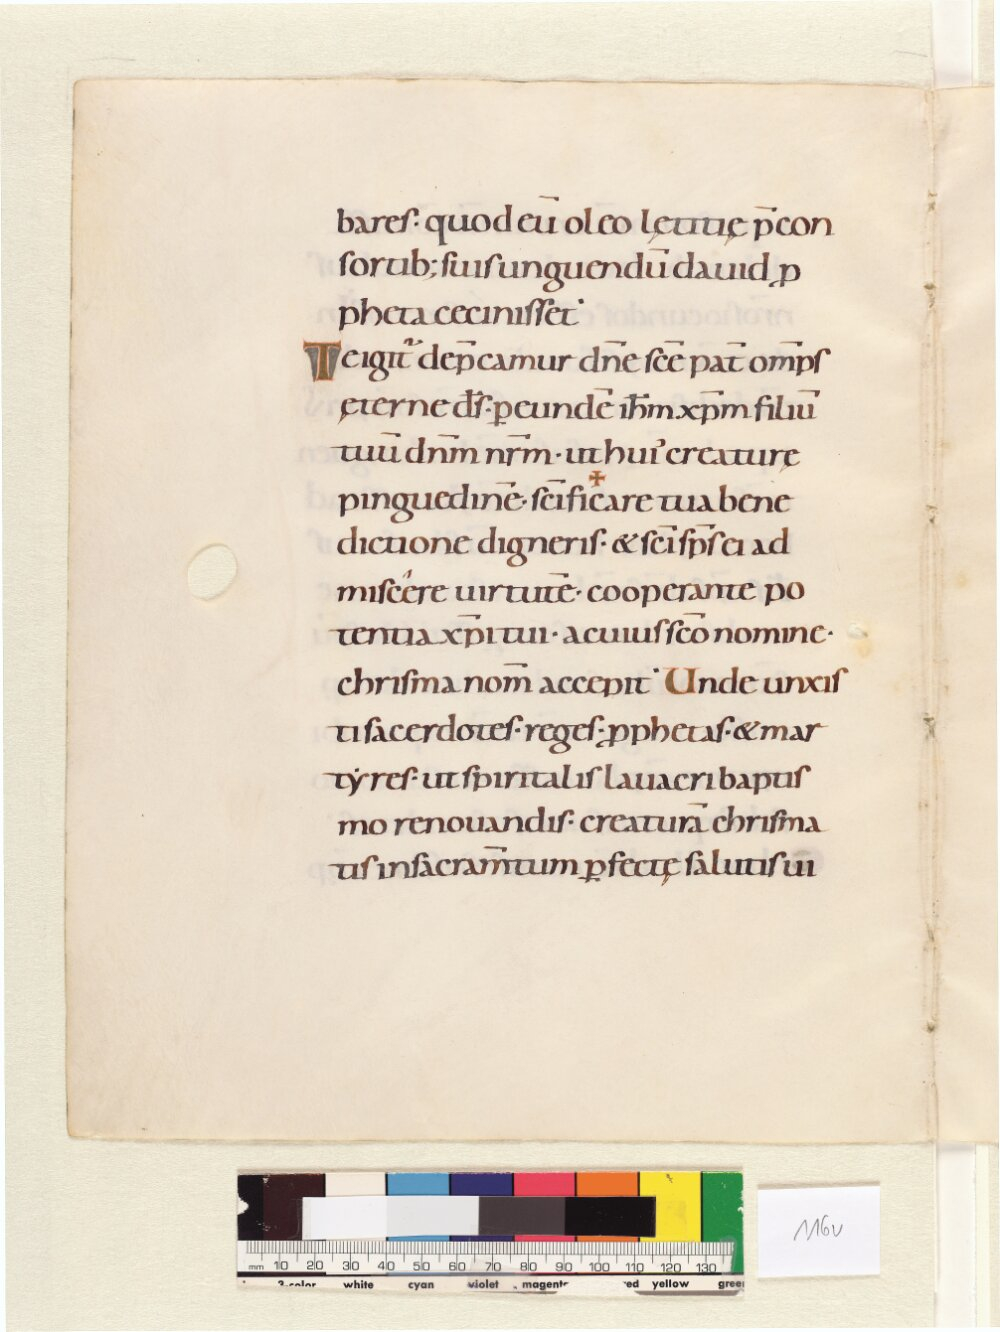 bares· quod eū oleo lętitię p̄con
sortib; suis unguendū dauid ꝓ
pheta cecinisset·
Te igit᷑ dep̄camur dn̄e sc̄e pat̄ om̄ps
ęterne d̄s· ꝑ eundē ih̄m xp̄m filiū
tuū dn̄m nr̄m· ut hui᾽ creaturę
pinguedinē· sc̄ifi✝care tua bene
dictione digneris· & sc̄i sp̄s ei ad
miscere uirtutē· cooperante po
tentia xp̄i tui· a cuius sc̄o nomine·
chrisma nom̄ accepit· Unde unxis
ti sacerdotes· reges· ꝓphetas· & mar
tẏres· ut spiritalis lauacri baptis
mo renouandis· creaturā chrisma
tis in sacram̄tum ꝑfectę salutis ui
116v
mm 10 20 30 40 50 60 70 80 90 100 110 120 130
3-color white cyan violet magent red yellow green